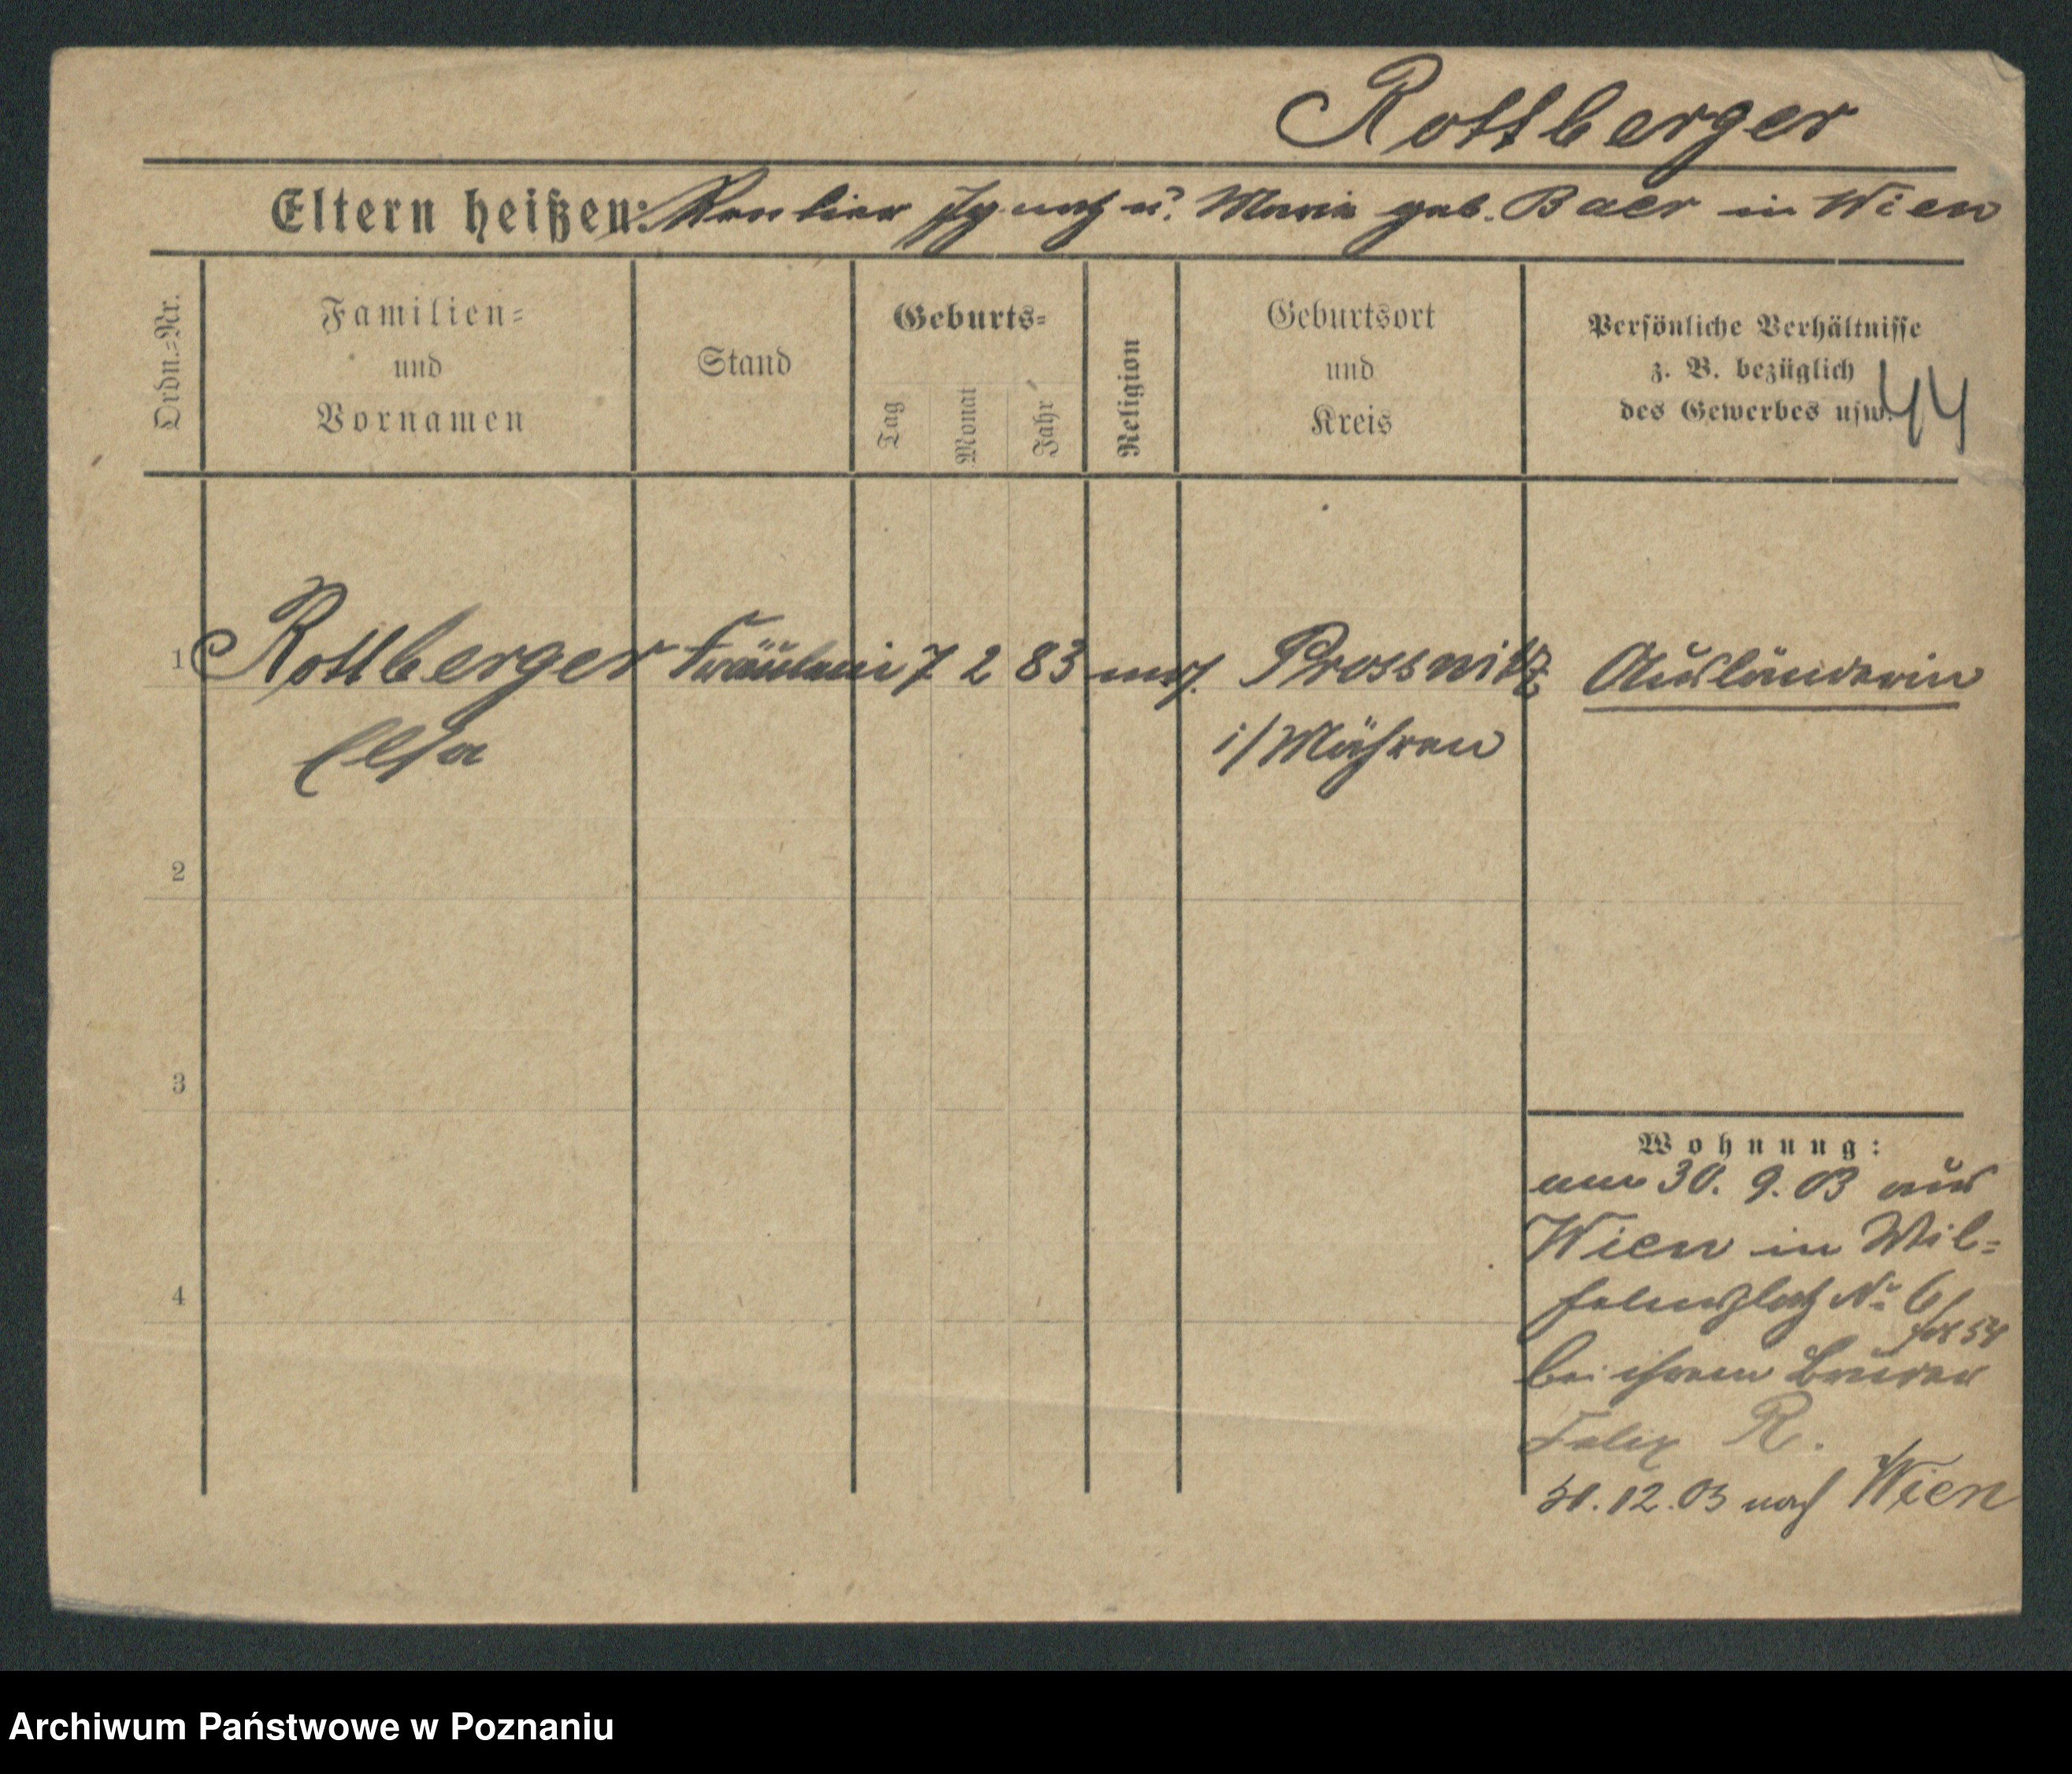 Rottberger
Eltern heißen: Rentier Ignatz u. Marie geb. Baer in Wien
Ordn.=Nr.
Familien=
und
Vornamen
Stand
Geburts=
Tag
Monat
Jahr
Religion
Geburtsort
und
Kreis
Persönliche Verhältnisse
z. B. bezüglich
des Gewerbes usw.
44
1 Rottberger Fräulein 7 2 83 mos. Prossnitz Ausländerin
Elsa i/Mähren
2
3
4
Wohnung:
am 30. 9. 03 aus
Wien in Wil=
helmsplatz No 6/
bei ihrem Bruder
Felix R.
31.12.03 nach Wien
Archiwum Państwowe w Poznaniu